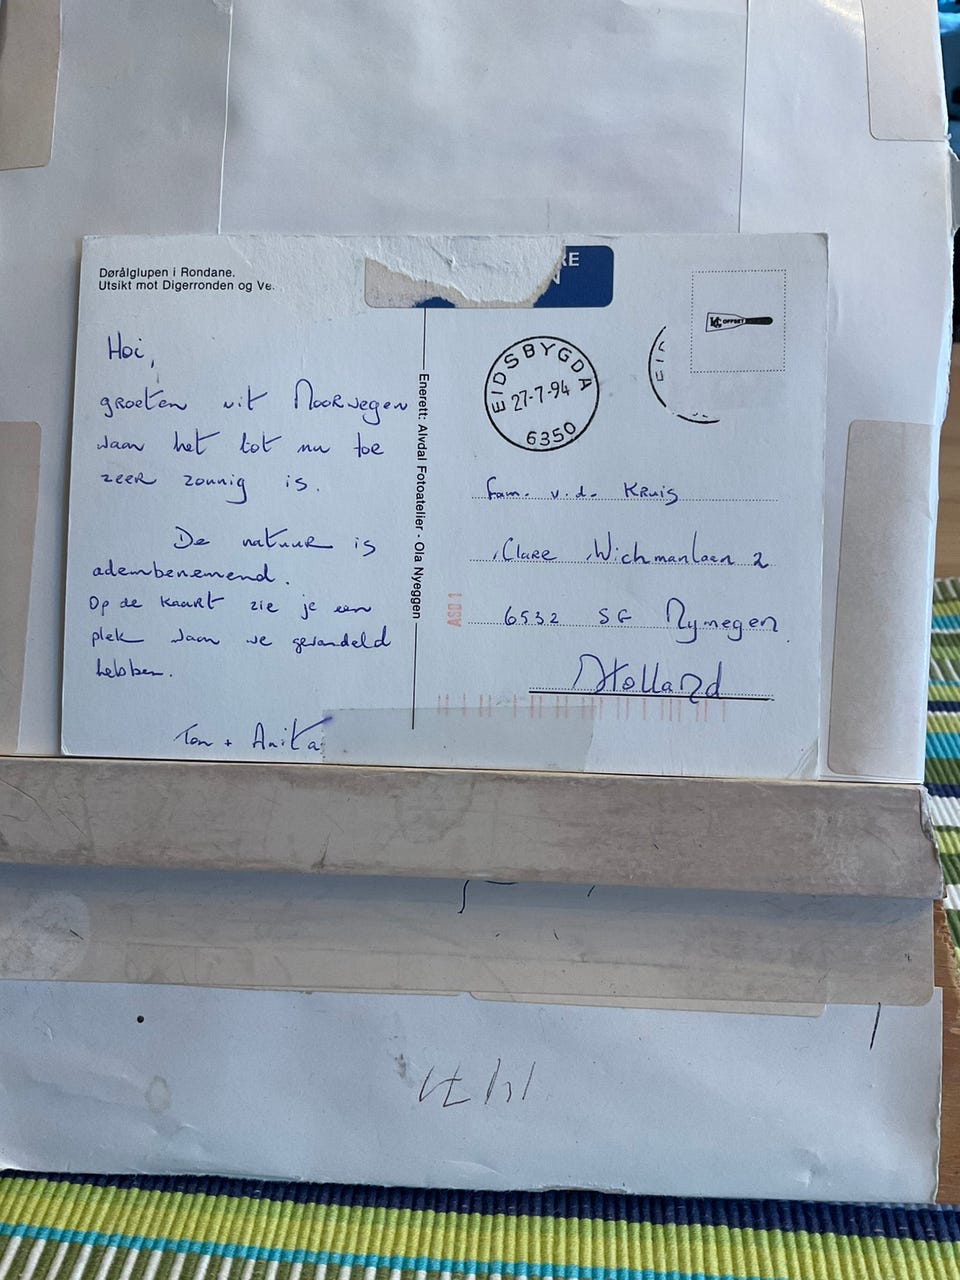 Dørålglupen i Rondane.
Utsikt mot Digerronden og Ve.
RE
N
OFFSET
EIDSBYGDA
27-7-94
6350
EI
Hoi,
groeten uit Noorwegen
waar het tot nu toe
zeer zonnig is.
De natuur is
adembenemend.
Op de kaart zie je een
plek waar we gewandeld
hebben.
Ton + Anita
Enerett: Alvdal Fotoatelier - Ola Nyeggen
Fam. v.d. Kruis
Clare Wichmanlaan 2
6532 SG Nymegen
Holland
ASO 1